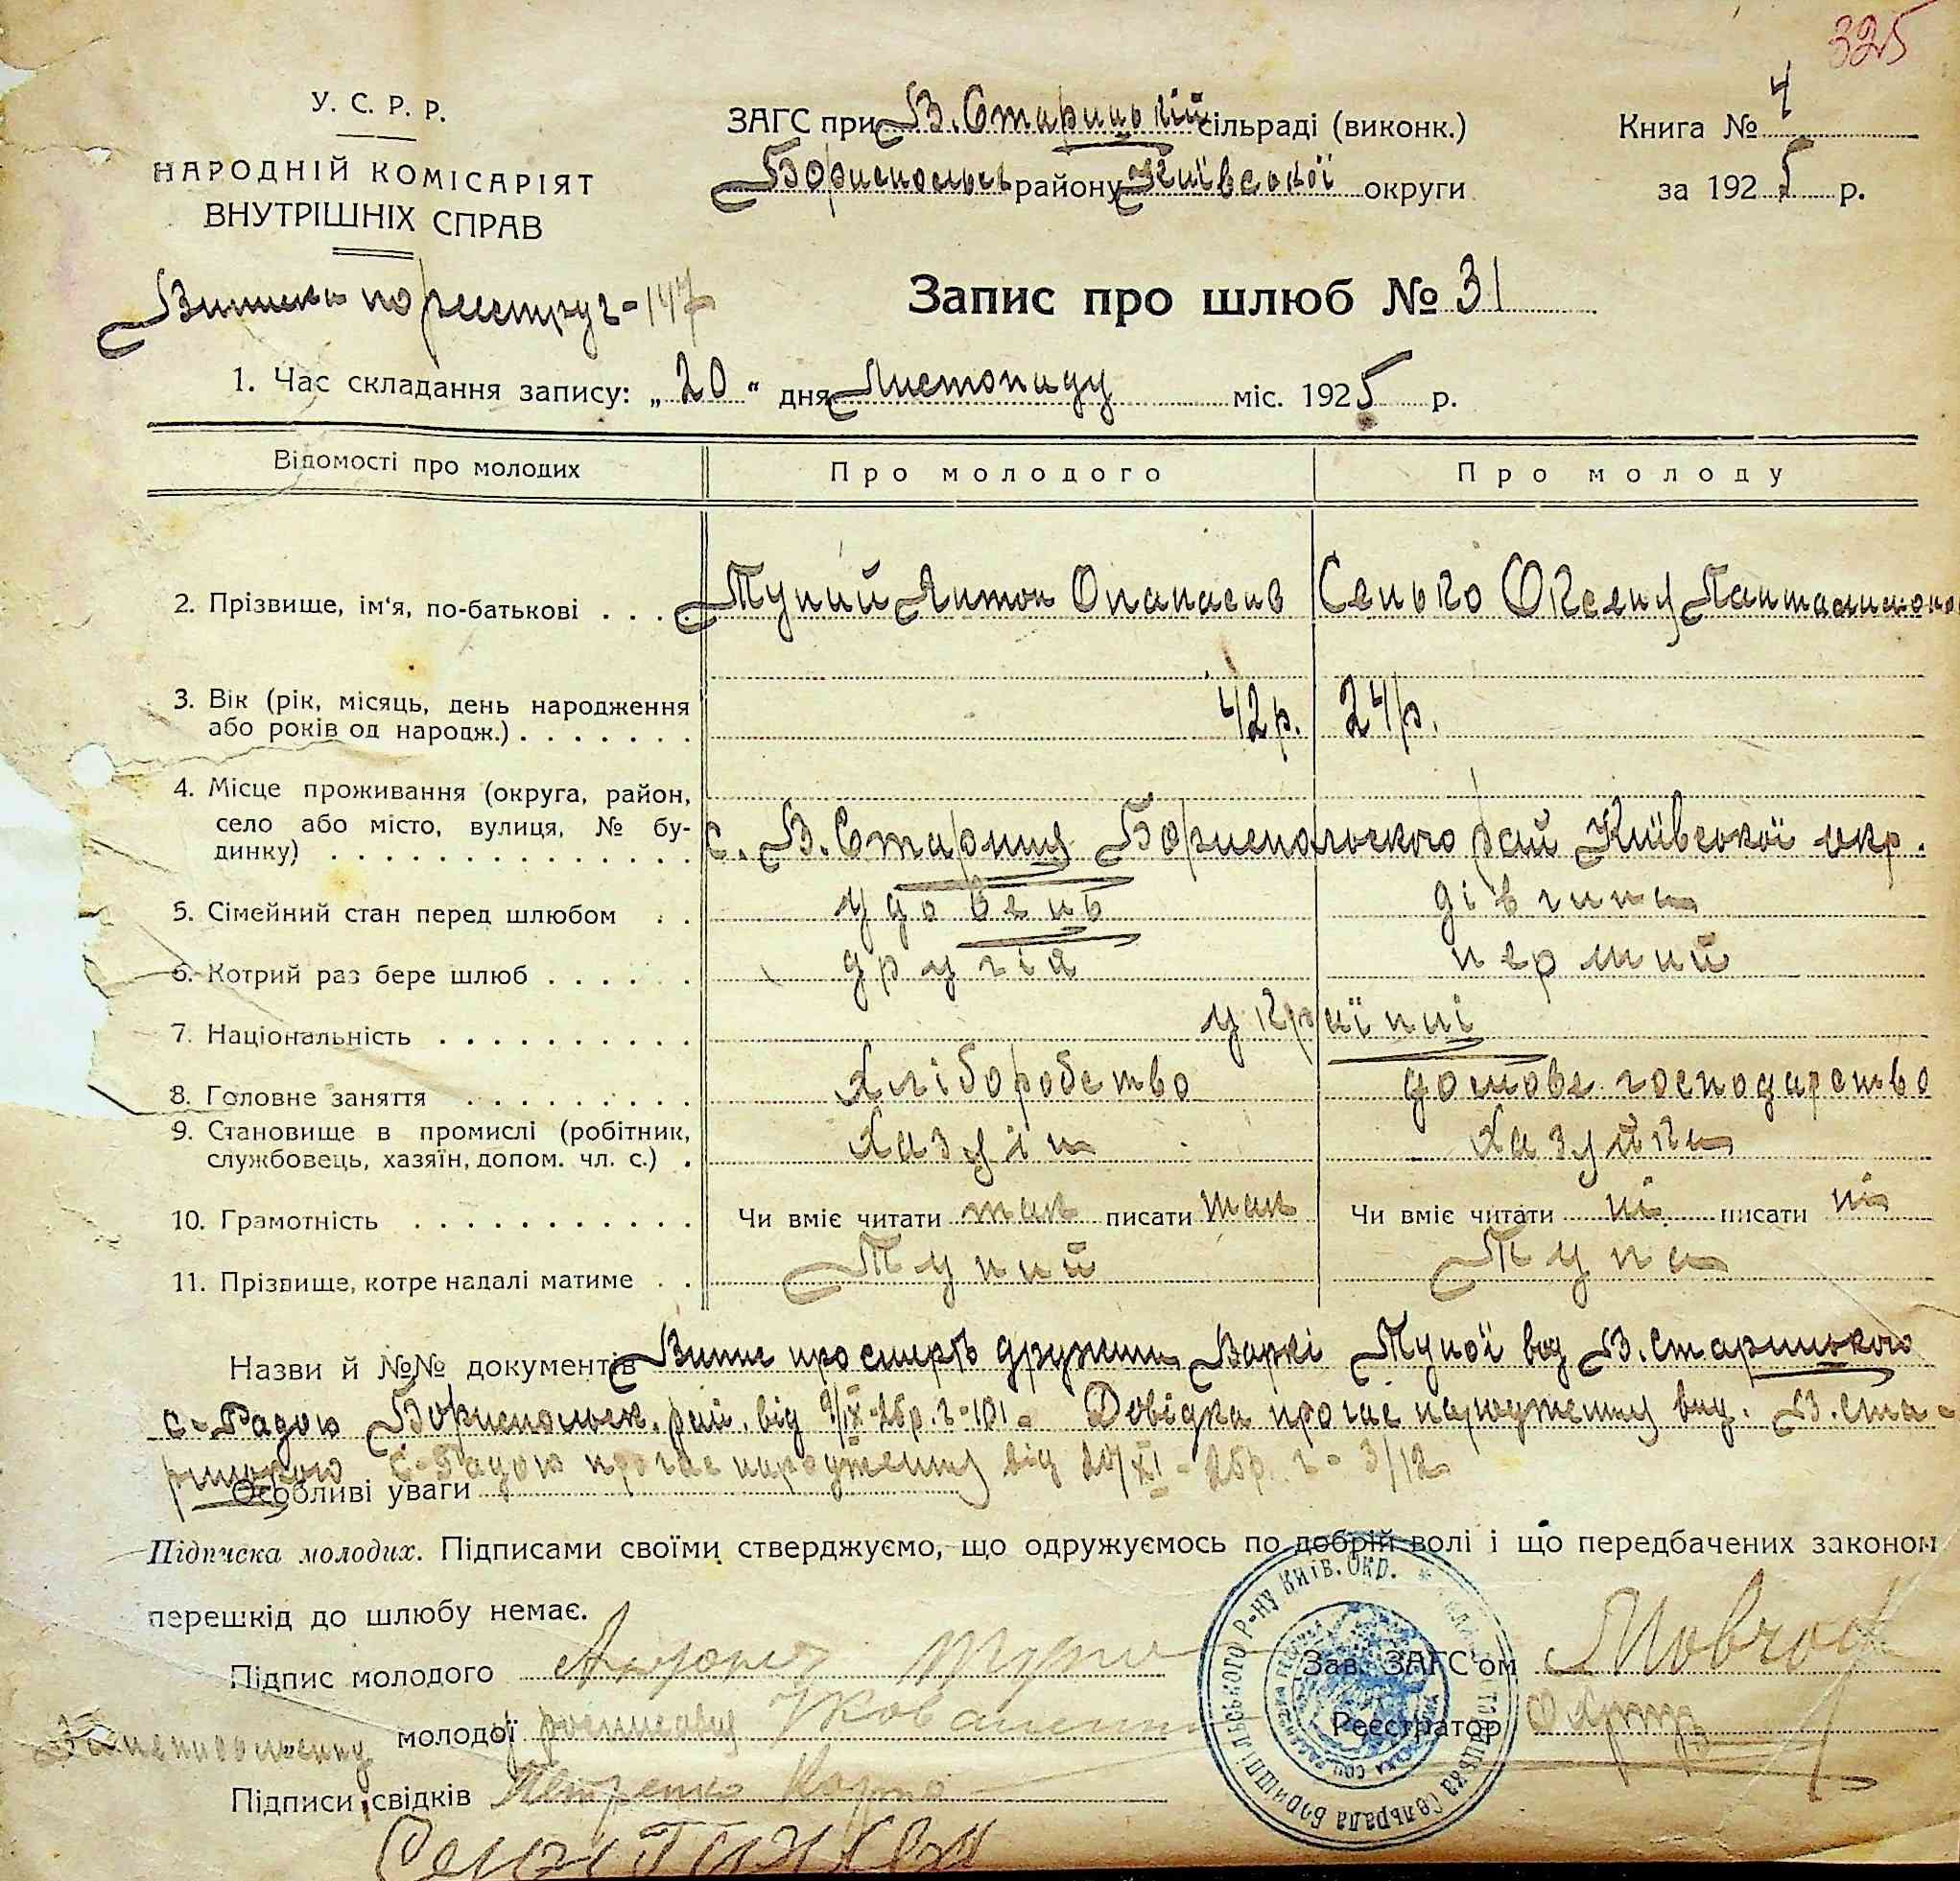 325
У. С. Р. Р.
НАРОДНІЙ КОМІСАРІЯТ
ВНУТРІШНІХ СПРАВ
ЗАГС при В. Старицькій сільраді (виконк.)
Бориспольськ району Київської округи
Книга № 4
за 1925 р.
по реєстру ч-147
Запис про шлюб № 31
1. Час складання запису: „20“ дня Листопаду міс. 1925 р.
Відомості про молодих
Про молодого
Про молоду
2. Прізвище, ім‘я, по-батькові . . . . Тупий Антон Опанасів Сенько Оксену
3. Вік (рік, місяць, день народження
або років од народж.) . . . . . . . 42 р. 24 р.
4. Місце проживання (округа, район,
село або місто, вулиця, № бу-
динку) . . . . . . . . . . . . . . . с. В. Стариця Бориспольського рай Київської окр.
5. Сімейний стан перед шлюбом . . удовець дівчина
6. Котрий раз бере шлюб . . . . . . другій перший
7. Національність . . . . . . . . . . україпці
8. Головне заняття . . . . . . . . . Хліборобство домове господарство
9. Становище в промислі (робітник,
службовець, хазяїн, допом. чл. с.) . Хазяїн Хазяйка
10. Грамотність . . . . . . . . . . . . Чи вміє читати так писати так Чи вміє читати ні писати ні
11. Прізвище, котре надалі матиме . . Тупий Тупа
Назви й №№ документів Випис про смерть дружини Варкі Тупої вид В. Старицького
с-Радою Бориспольськ. рай. від 9/IX-25р. ч-101. Довідка про час народження вид. В. Ста-
рицькою с-Радою про час народження від 20/XI-25р. ч-3/12
Особливі уваги
Підписка молодих. Підписами своїми стверджуємо, що одружуємось по добрій волі і що передбачених законом
перешкід до шлюбу немає.
Підпис молодого
Зав. ЗАГС'ом Мовчан
„ молодої росписавсь
Реєстратор
Підписи свідків Петренко
Бориспільського Р-ну Київ. Окр.